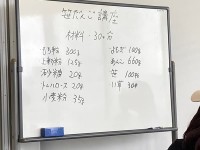 笹だんご講座
材料・30ヶ分
もち粉 300g
上新粉 125g
砂糖 20g
トレハロース 20g
小麦粉 35g
よもぎ 100g
あんこ 660g
笹 100枚
い草 30本